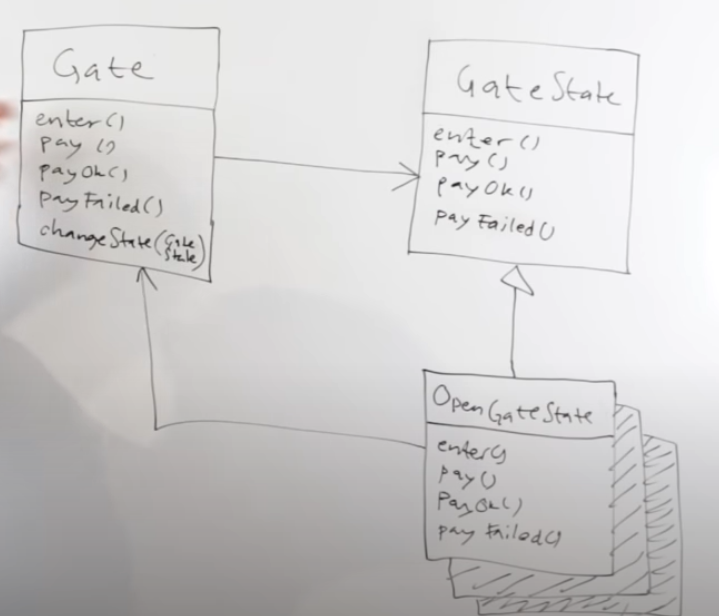 Gate
enter()
pay()
payOk()
payFailed()
changeState(Gate
State)
GateState
enter()
pay()
payOk()
payFailed()
OpenGateState
enter()
pay()
payOk()
payFailed()